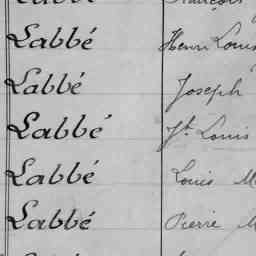 Labbé Henri Louis
Labbé Joseph
Labbé Jh. Louis
Labbé Louis M
Labbé Pierre M